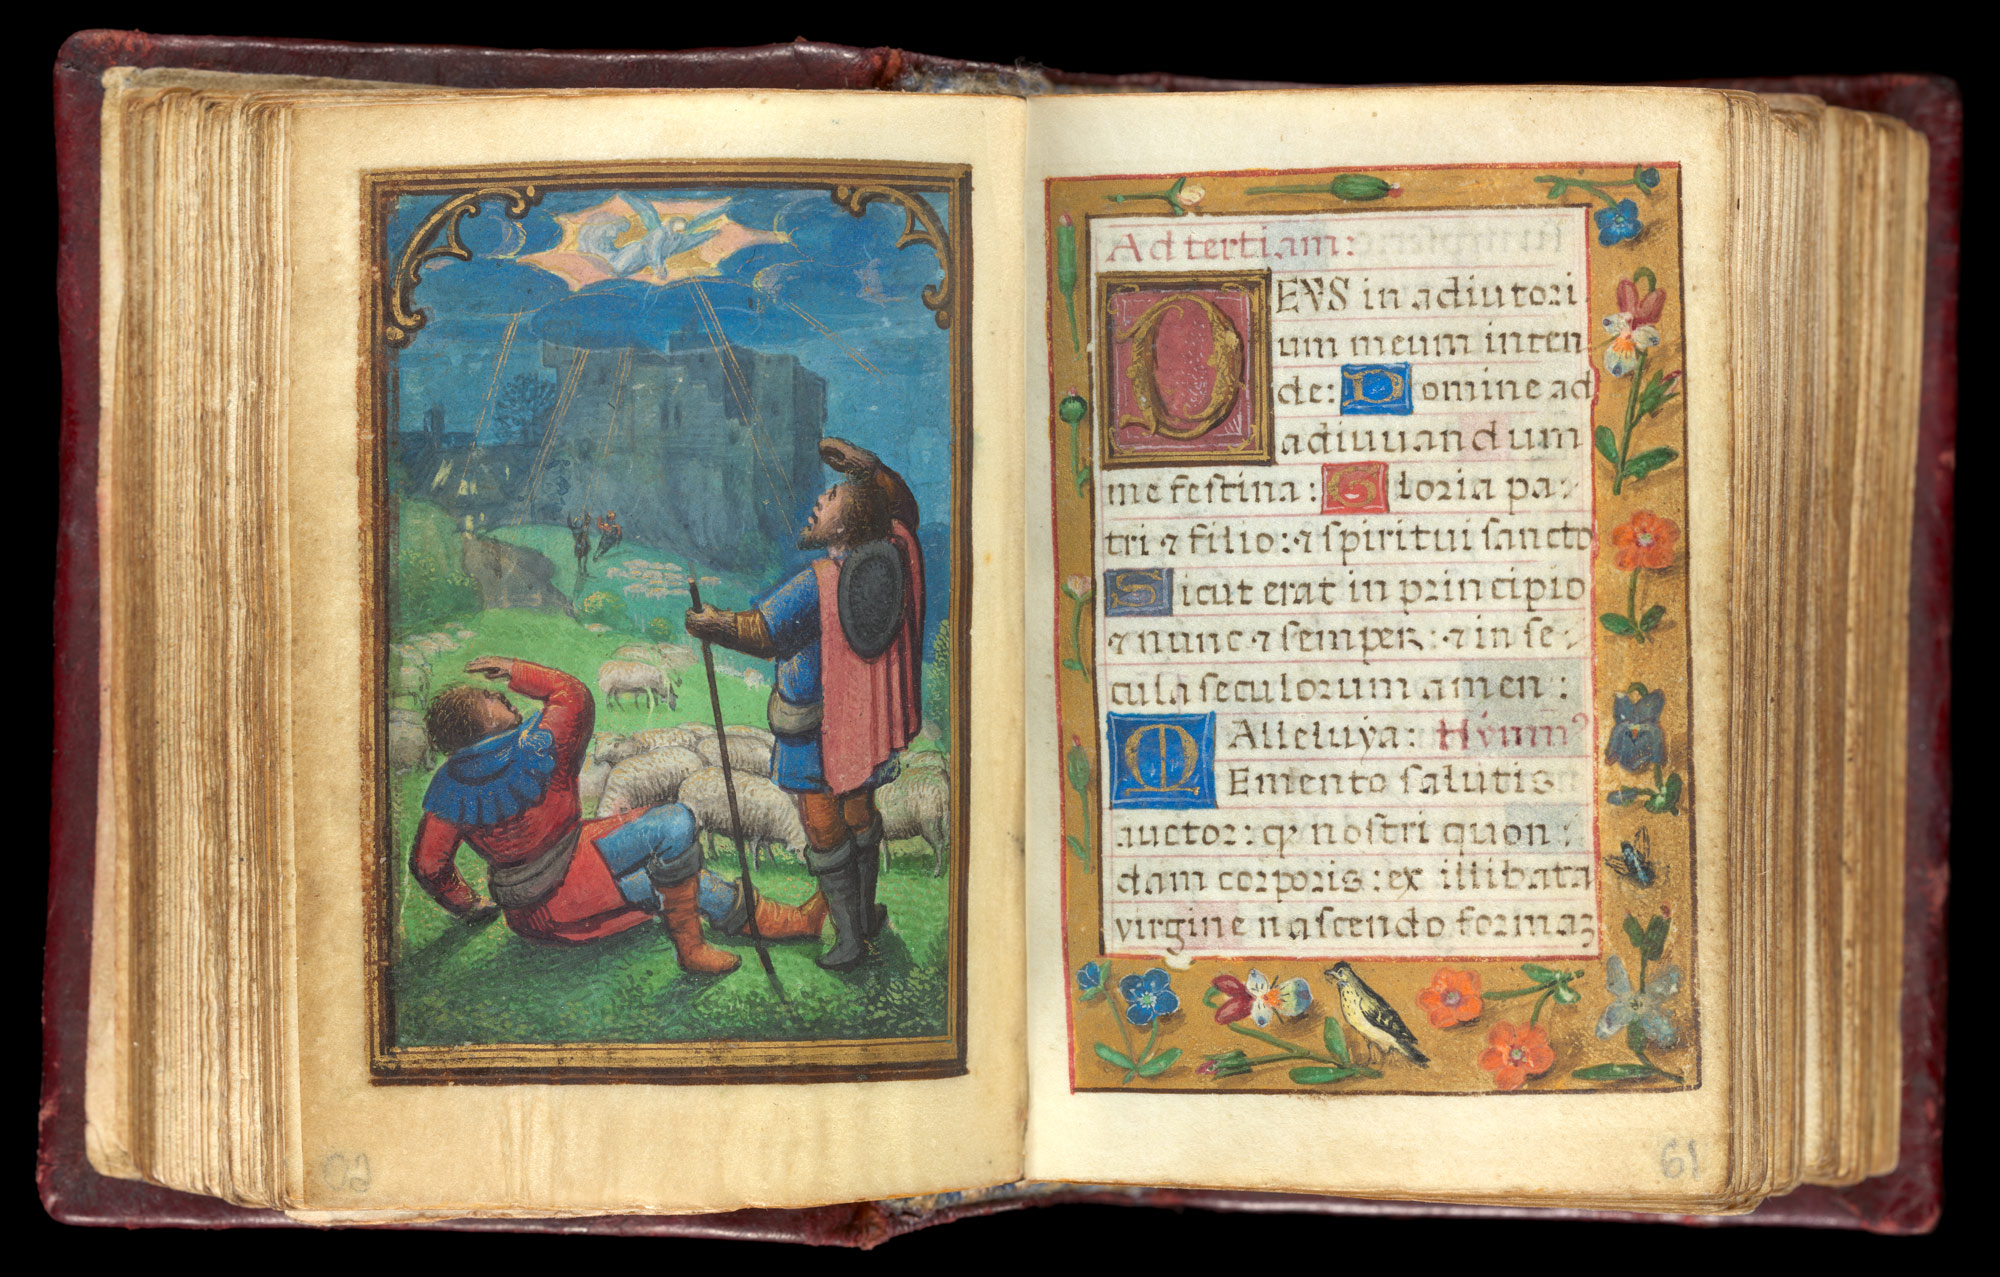 Ad tertiam:
DEVS in adiutori
um meum inten
de: Domine ad
adiuuandum
me festina: Gloria pa-
tri ⁊ filio: ⁊ spiritui sancto
Sicut erat in principio
⁊ nunc ⁊ semper: ⁊ in se-
cula seculorum amen:
Alleluya: Hymnꝰ
MEmento salutis
auctor: ꝙ nostri quon-
dam corporis: ex illibata
virgine nascendo formaʒ
60
61